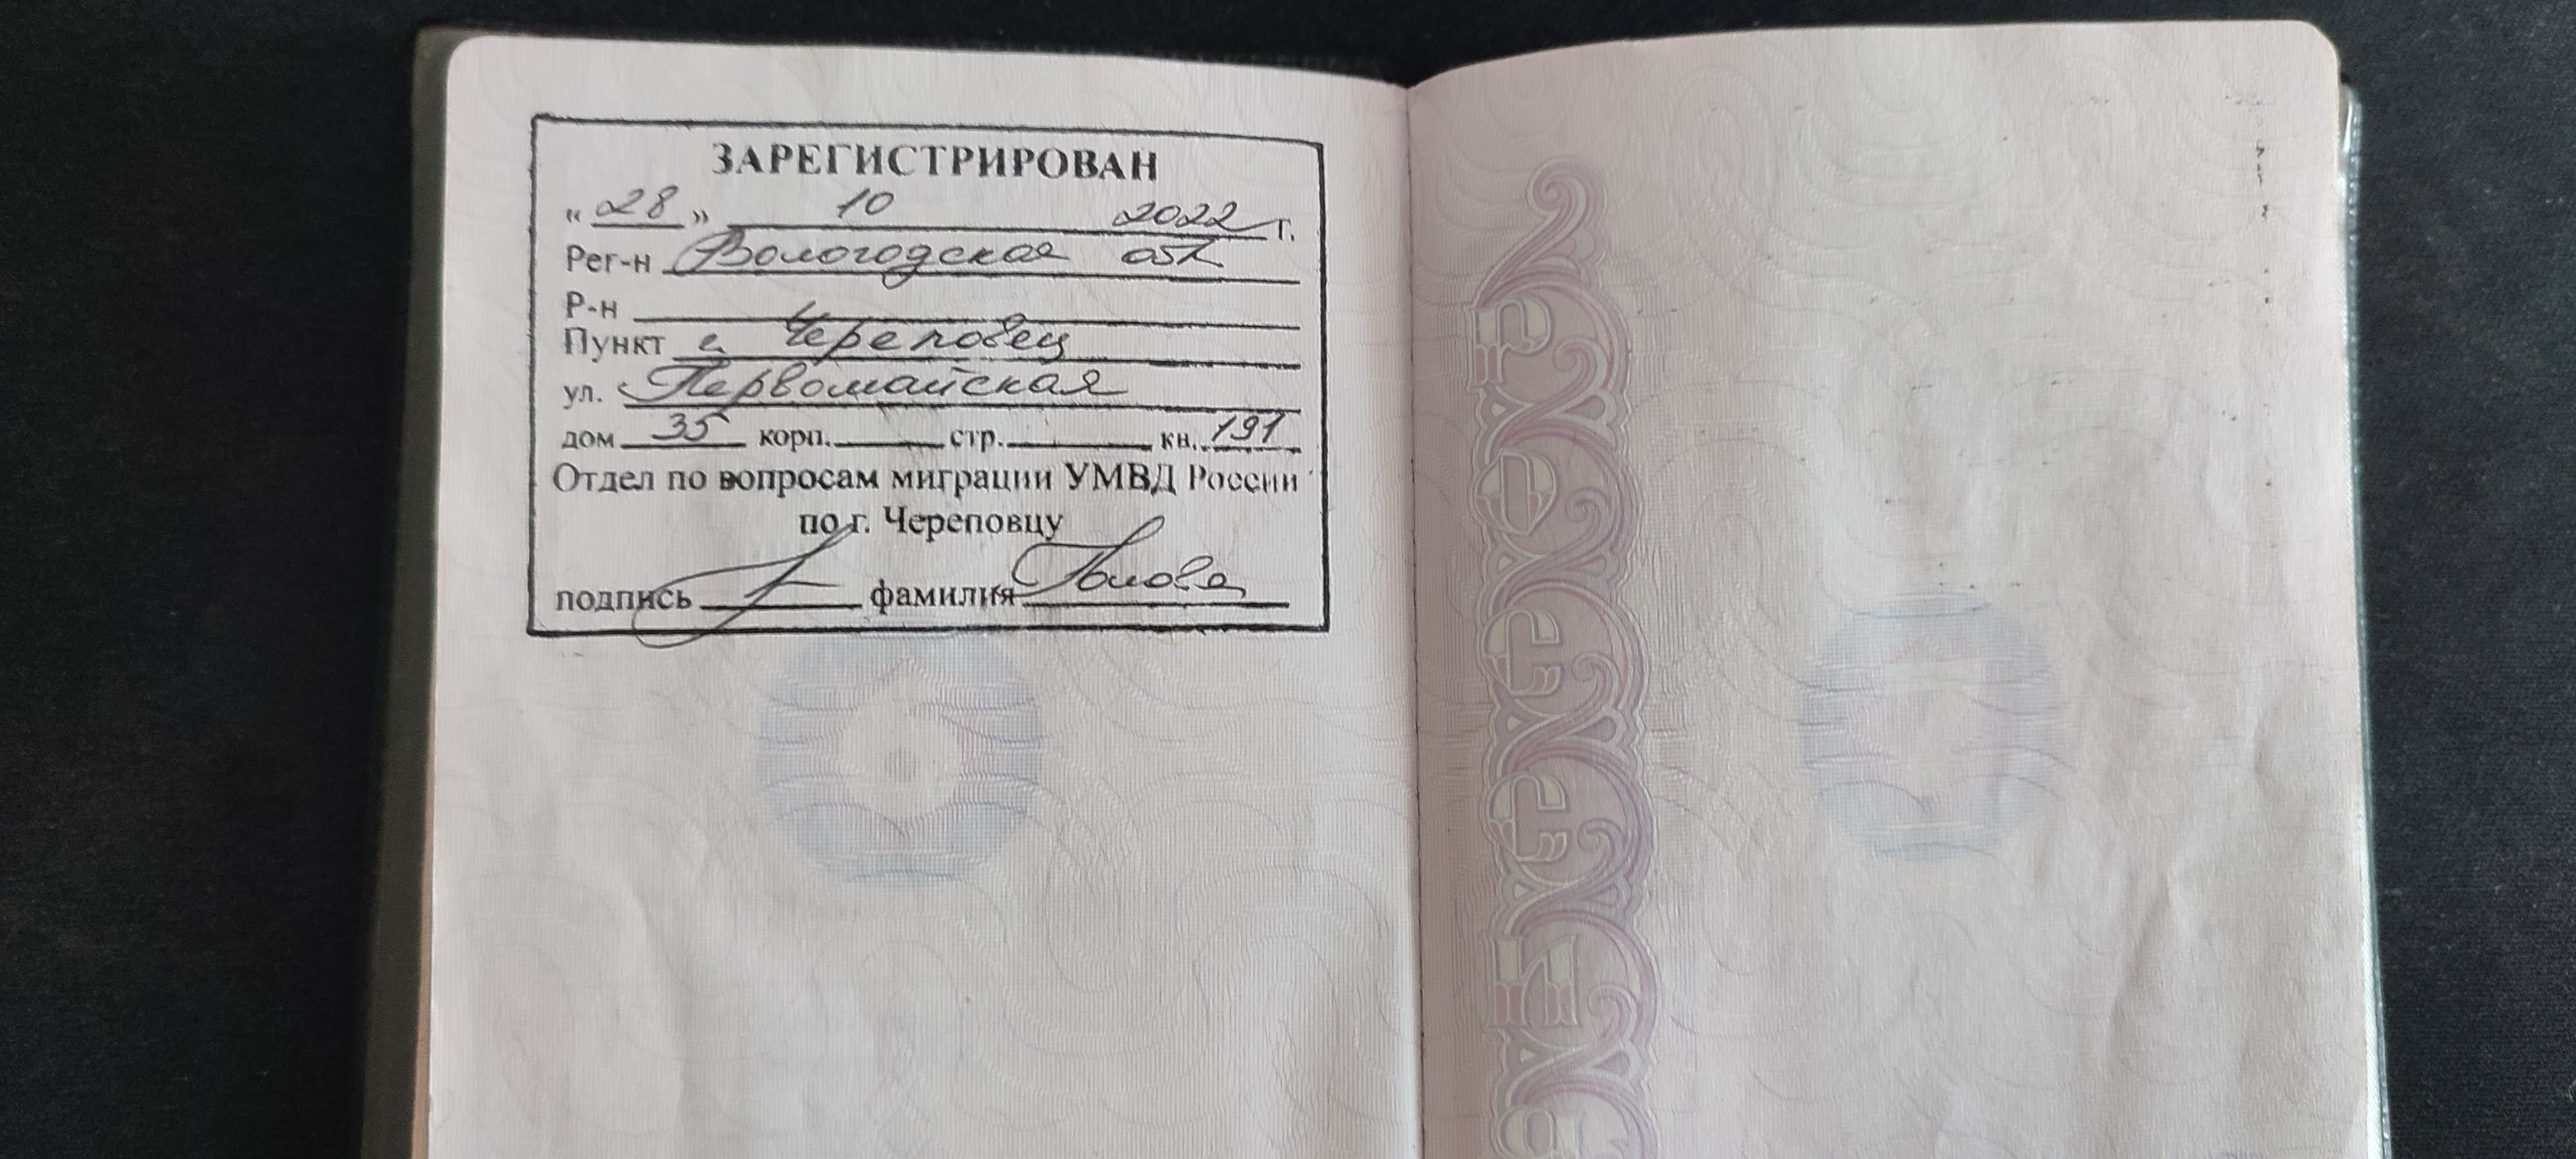 ЗАРЕГИСТРИРОВАН
« 28 » 10 2022 г.
Рег-н Вологодская обл
Р-н
Пункт г. Череповец
ул. Первомайская
дом 35 корп. стр. кв. 191
Отдел по вопросам миграции УМВД России
по г. Череповцу
подпись фамилия